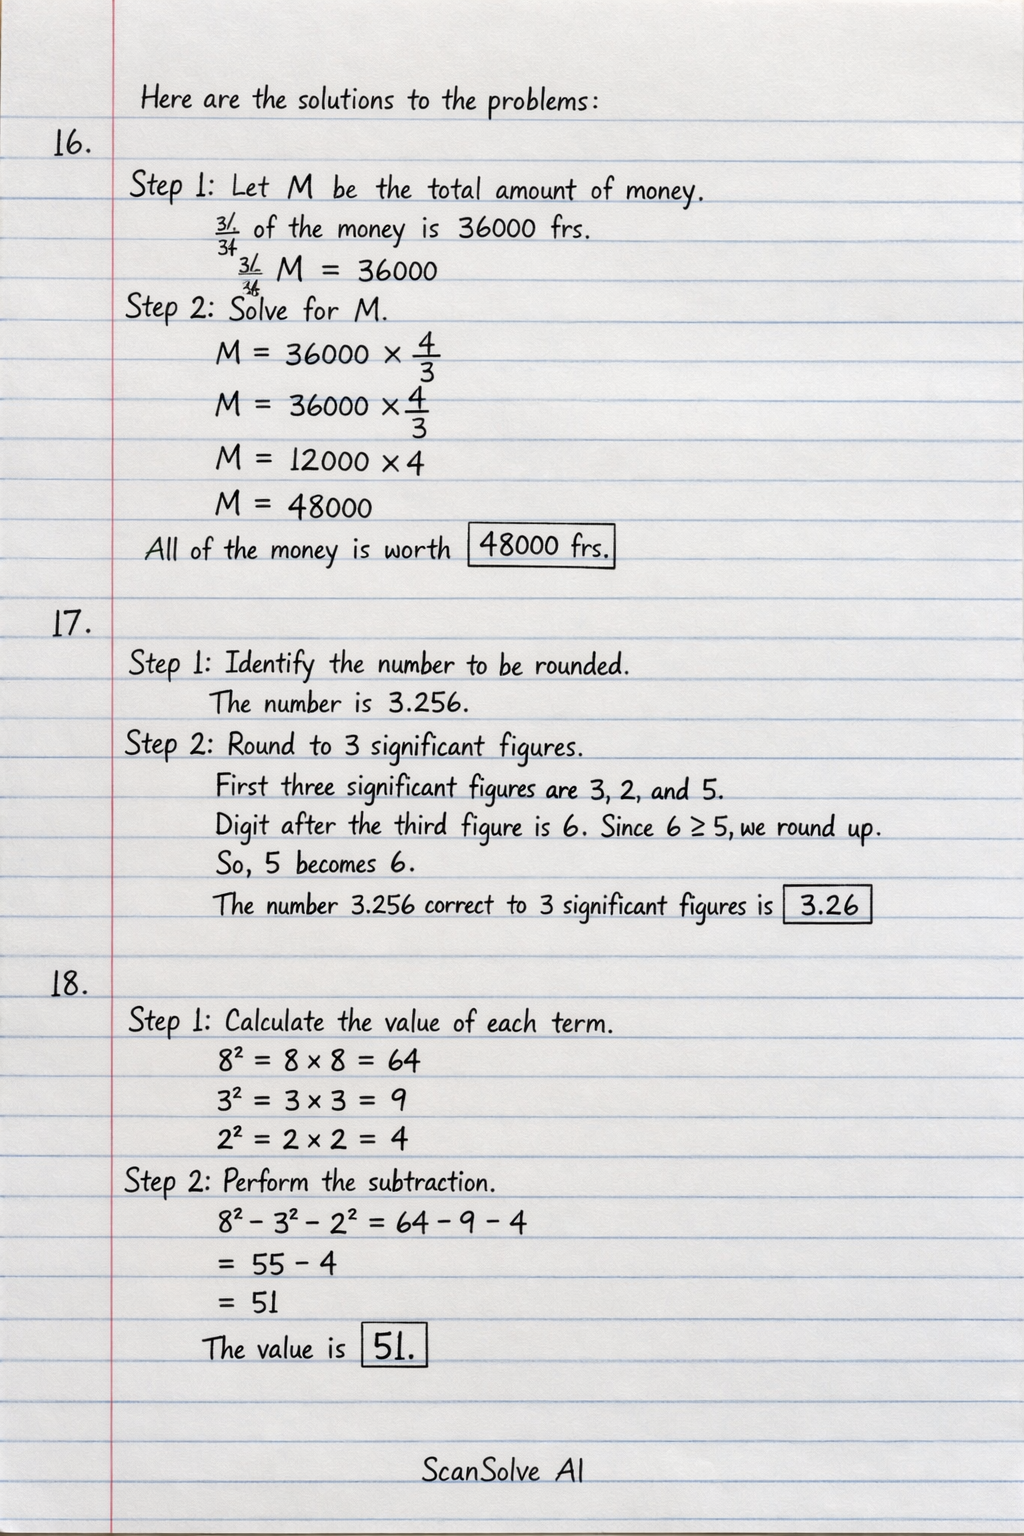 Here are the solutions to the problems:
16.
Step 1: Let M be the total amount of money.
of the money is 36000 frs.
M = 36000
Step 2: Solve for M.
M = 36000 × 4/3
M = 36000 × 4/3
M = 12000 × 4
M = 48000
All of the money is worth 48000 frs.
17.
Step 1: Identify the number to be rounded.
The number is 3.256.
Step 2: Round to 3 significant figures.
First three significant figures are 3, 2, and 5.
Digit after the third figure is 6. Since 6 ≥ 5, we round up.
So, 5 becomes 6.
The number 3.256 correct to 3 significant figures is 3.26
18.
Step 1: Calculate the value of each term.
8² = 8 × 8 = 64
3² = 3 × 3 = 9
2² = 2 × 2 = 4
Step 2: Perform the subtraction.
8² – 3² – 2² = 64 – 9 – 4
= 55 – 4
= 51
The value is 51.
ScanSolve AI